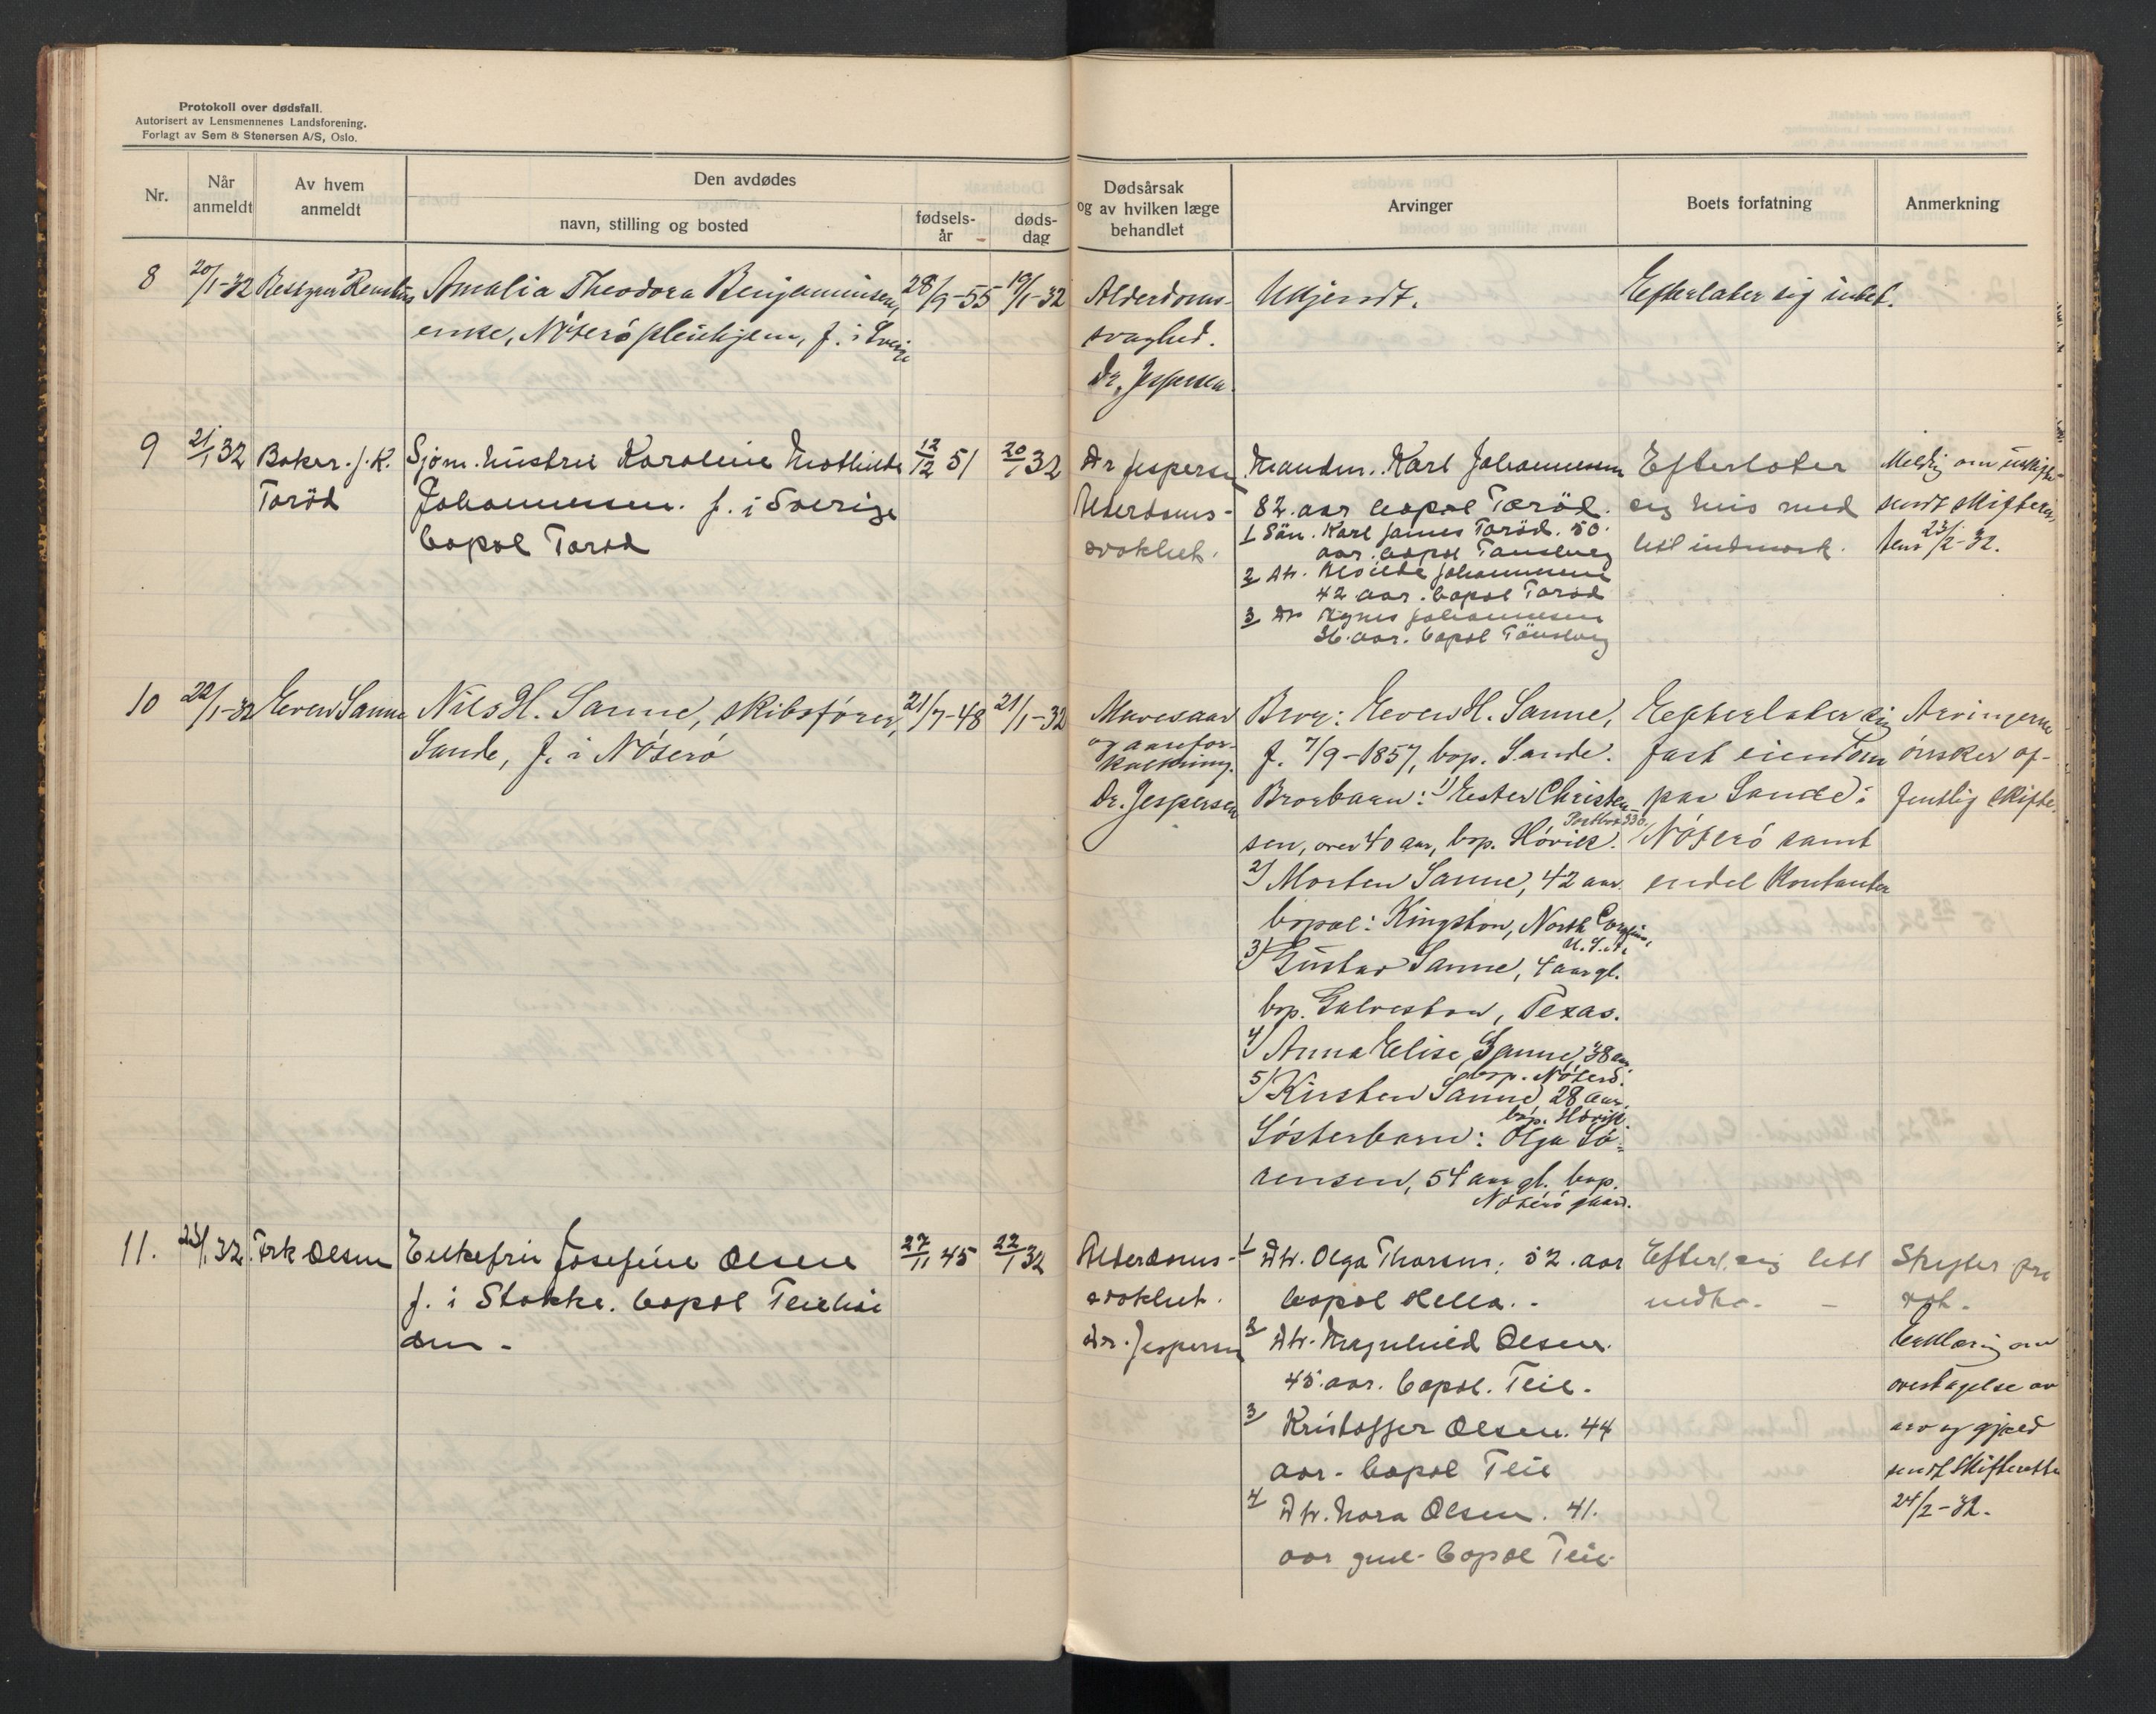 Protokoll over dødsfall.
Autorisert av Lensmennenes Landsforening.
Forlagt av Sem & Stenersen A/S, Oslo.
Nr.
Når anmeldt
Av hvem anmeldt
Den avdødes
navn, stilling og bosted
fødsels-år
døds-dag
Dødsårsak og av hvilken læge behandlet
Arvinger
Boets forfatning
Anmerkning
8
20/1-32
Bestyrer
Amalia Theodora Benjaminsen,
enke, Nøterø pleiehjem, f. i Sverige
28/9-55
19/1-32
Alderdoms-
svaghed.
Dr. Jespersen.
Ukjendt.
Efterlater sig intet.
9
21/1 32
Baker. J. K.
Torød
Sjøm. hustru Karoline Mathilde
Johannessen. f. i Sverige
bopæl Torød
12/12 51
20/1 32
Dr Jespersen
Alderdoms-
svakhet.
Manden. Karl Johannessen
82. aar bopæl Torød.
1 Sön. Karl James Torød. 50.
aar. bopæl Tønsberg
2 Dtr. Johannessen
42 aar. bopæl Torød
3 Dtr Agnes Johannesen
36. aar. bopæl Tönsberg
Efterlater
sig hus med
litt indmark.
Meldig om
sendt skifteret-
ten 23/2-32.
10
22/1-32
Even Sanne
Nils H. Sanne, skibsfører,
Sande, f. i Nøterø
21/7-48
21/1-32
Mavesaar
og aarefor-
kalkning.
Dr. Jespersen
Bror: Even H. Sanne,
f. 7/9-1857, bop. Sande.
Brorbarn: 1) Ester Christen-
Postbox 330.
sen, over 40 aar, bop. Hövik.
2) Morten Sanne, 42 aar.
bopæl: Kingston, North Carolina,
U.S.A.
3) Gustav Sanne, 4 aar gl.
bop. Galveston, Texas.
4) Anna Elise Sanne, 38 aar.
bop. Nøterö.
5) Kirsten Sanne, 28 aar.
bop. Hövik.
Søsterbarn: Olga Sö-
rensen, 54 aar gl. bop.
Nøterö gaard.
Efterlater sig
fast eiendom
paa Sande i
Nøterö samt
endel kontanter
Arvingerne
ønsker of-
fentlig skifte.
11.
23/1 32
Frk Olsen
Enkefru Josefine Olsen
f. i Stokke. bopæl Teiehöi
den -
27/11 45
22/1 32
Alderdoms-
svakhet.
Dr. Jespersen
1 Dtr. Olga Thorsen. 52. aar
bopæl Hella. -
2 Dtr. Magnhild Olsen.
45. aar. bopæl. Teie.
3 Kristoffer Olsen. 44
aar - bopæl Teie
4 Dtr. Nora Olsen. 41.
aar gml. bopæl Teie
Efterl. sig litt
indbo. -
Skyter pri
vat.
Erklæring om
overtagelse av
arv og gjæld
sendt skifteretten
24/2-32.